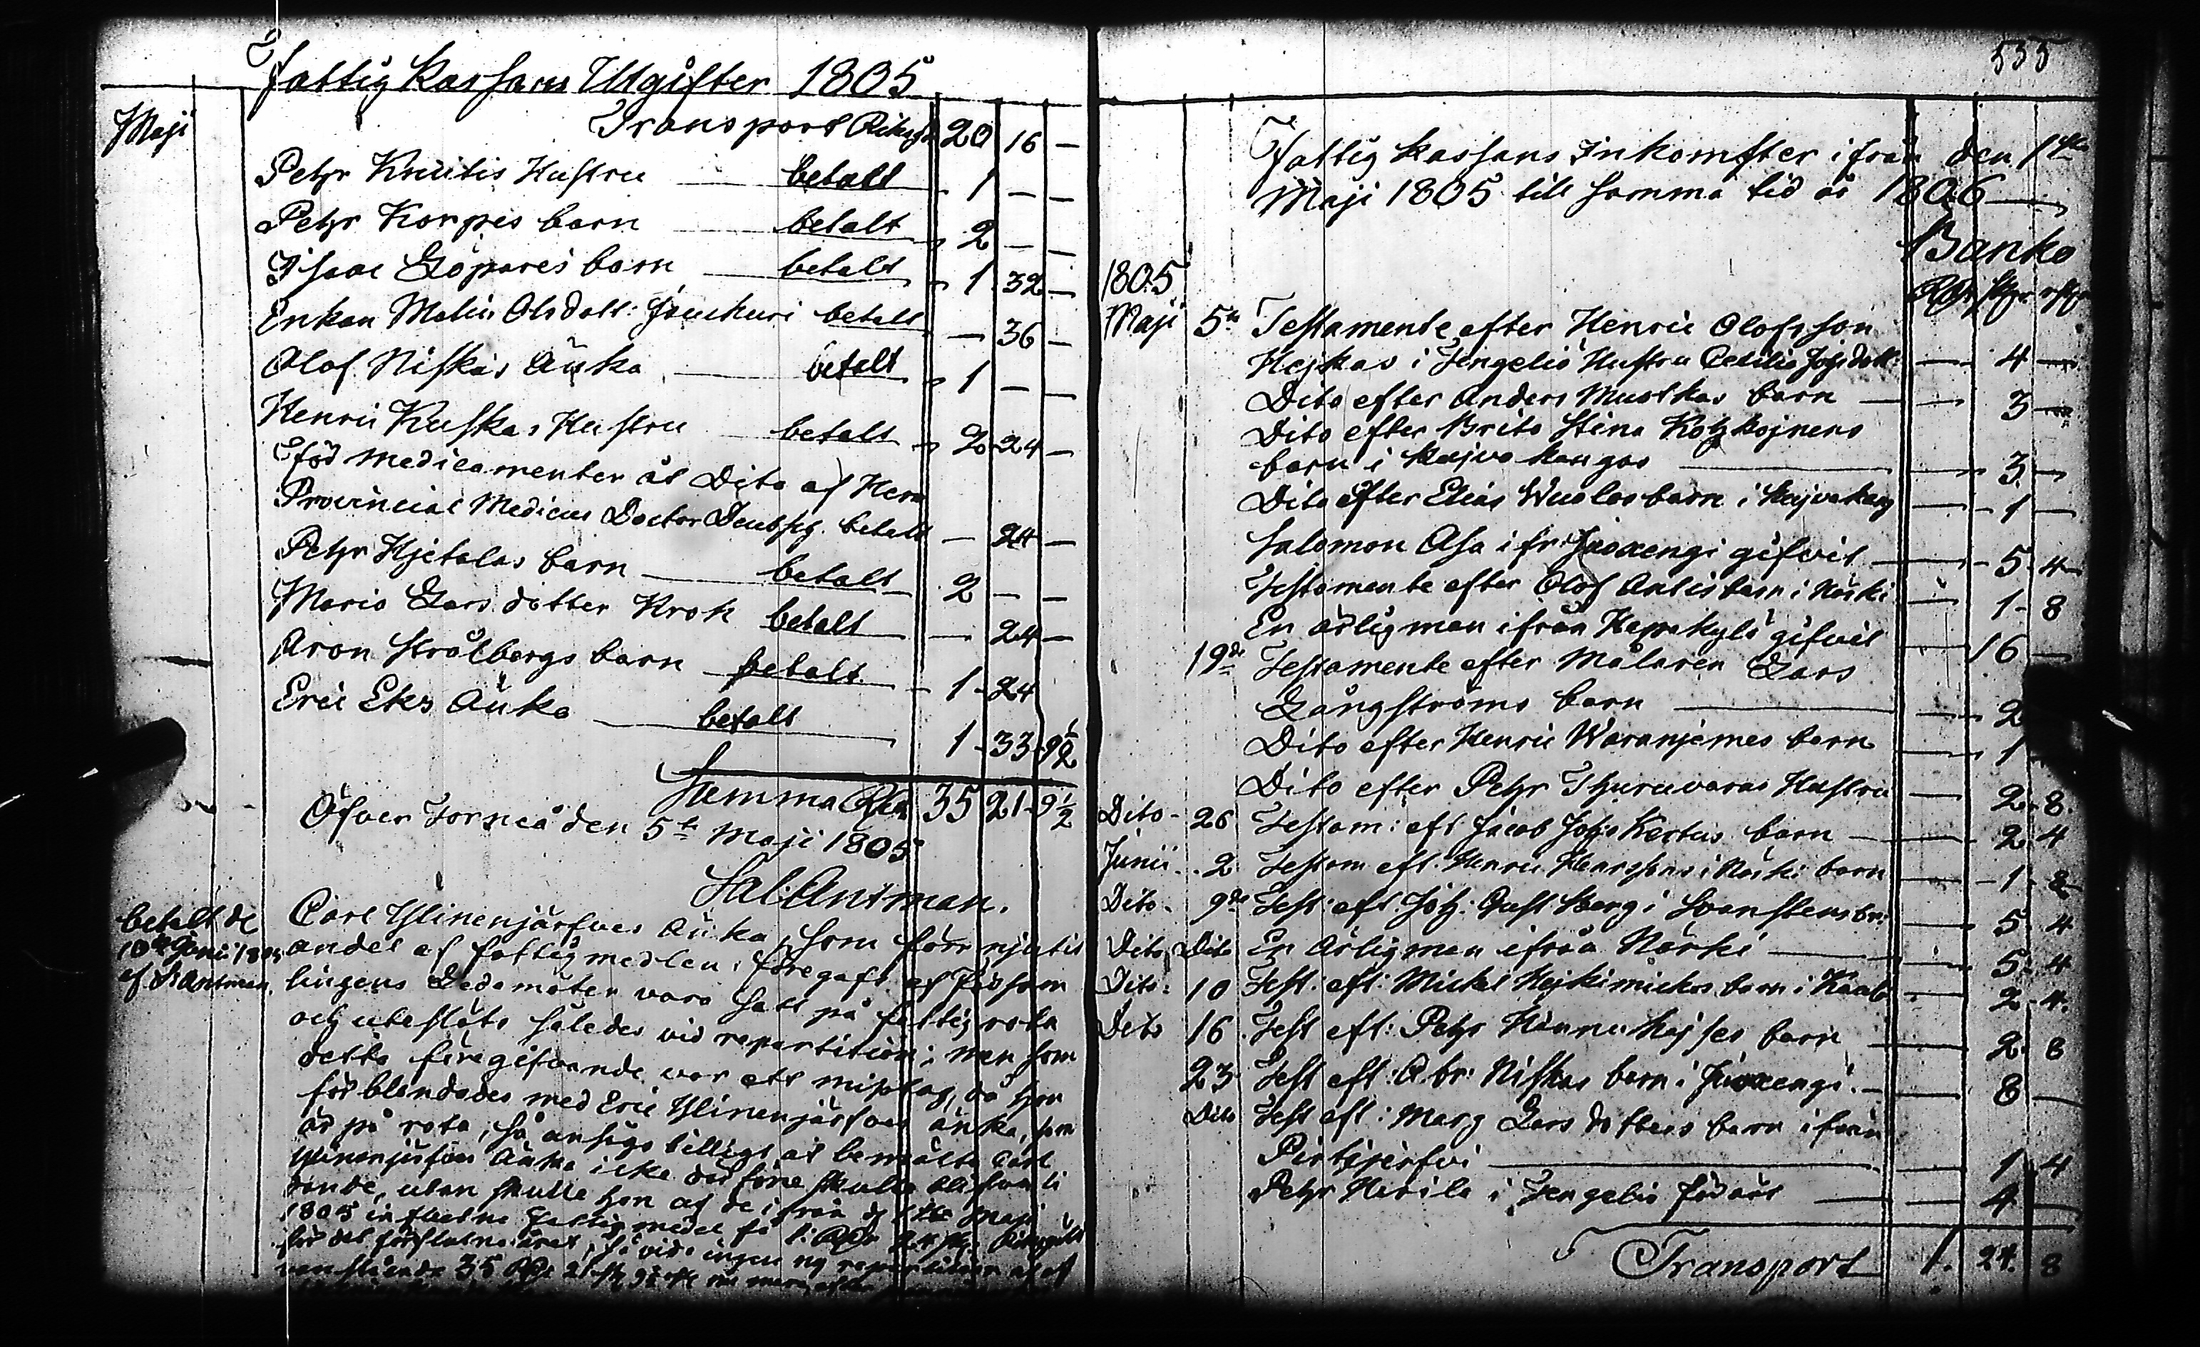 Fattig Kassans Utgifter 1805
Maji
Transport Riksg. 20 16 —
Petr Knutis Hustru betalt 1 — —
Petr Korpis barn betalt 2 — —
Isaac barn betalt 1 32 —
Enkan Malin Olsdott: Jauhuri betalt — 36 —
Olof Niskas Änka betalt 1 — —
Henric Kuskas Hustru betalt 2 24 —
Medicamenter åt Dito af Herr
Provincial Medicus Doctor betalt — 24 —
Petr Hjetalas barn betalt 2 — —
Maria Lars dotter Krok betalt — 24 —
Aron Strålbergs barn betalt 1 24
Eric Eks Änka betalt 1 33 9½
Summa Rdr 35 21 9½
Öfver Torneå den 5te Maji 1805
Sal. Antman.
betalt de
10de Junii 1805
af S. Antman.
Carl Ylinenjärfves Änka, som förr njutit
andel af fattigmedlen, föregafs af Församlingens
Ledamöter vara satt på fattig rota
och uteslöts således vid repartition; men som
detta föregifvande var ett misstag, då hon
förblandades med Eric Ylinenjärfves änka, som
är på rota, så ansågs billigt at bemälte Carl
Ylinenjärfves Änka icke derföre skulle blifva
utan skulle hon af de ifrån d. 1ste Maji
1805 influtne fattig medel få 1. Rdr 24 sk. Riksgäld
för det förflutne året, så vida ingen ny repartition af
35 Rdr 21 sk 9½
535
Fattig Kassans Inkomster ifrån den 1sta
Maji 1805 till samma tid år 1806
Banko
1805 Rdr sk. rst.
Maji 5te Testamente efter Henric Olofsson
Hejkas i Jengelio Hustru Cecilia Johsdott: — 4 —
Dito efter Anders Mustkas barn — 3 —
Dito efter Brita Stina Kohkojnens
barn i Kajvakangas — 3 —
Dito efter Elias Wuolas barn i Kajvakang — 1 —
Salomon Asa i fr: Juoxengi gifvit — 5 4
Testamente efter Olof Antis barn i Närki — 1 8
En ärlig man ifrån gifvit — 16 —
19de Testamente efter Målaren Lars
Långströms barn — 2
Dito efter Henric Waranjemes barn — 1
Dito efter Petr Thuruvaras Hustru — 2 8
Dito 26 Testam: eft Jacob Johs Kertus barn — 2 4
Junii 2 Testam eft. Henric Henrssons i Närki barn — 1 8
Dito 9de Test. eft. Joh: Gust Berg i Svanstens br: — 5 4
Dito Dito En ärlig man ifrån Närki — 5 4
Dito 10 Test: eft: Mickel Hejkimickos barn i — 2 4
Dito 16 Test eft: Petr barn — 2 8
23 Test eft: Abr: Niskas barn i Juoxengi — 8 —
Dito Test eft: Marg Lars dotters barn ifrån
Pirtijerfvi — 1 4
Petr Hietila i Jengelio förärt — 4 —
Transport 1. 24. 8